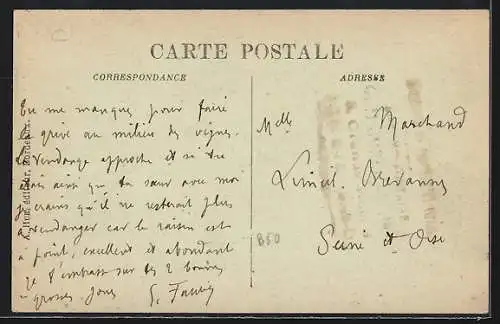 C
CARTE POSTALE
CORRESPONDANCE
ADRESSE
Tu me manques pour faire
la grive au milieu des vignes.
La vendange approche et si tu
étais ainsi que ta sœur avec moi
je crains qu'il ne resterait plus
à vendanger car le raisin est
à point, excellent et abondant
Je t'embrasse sur tes 2 bonnes
grosses joues
Melle Marchand
Limeil-Brevannes
Seine et Oise
B50